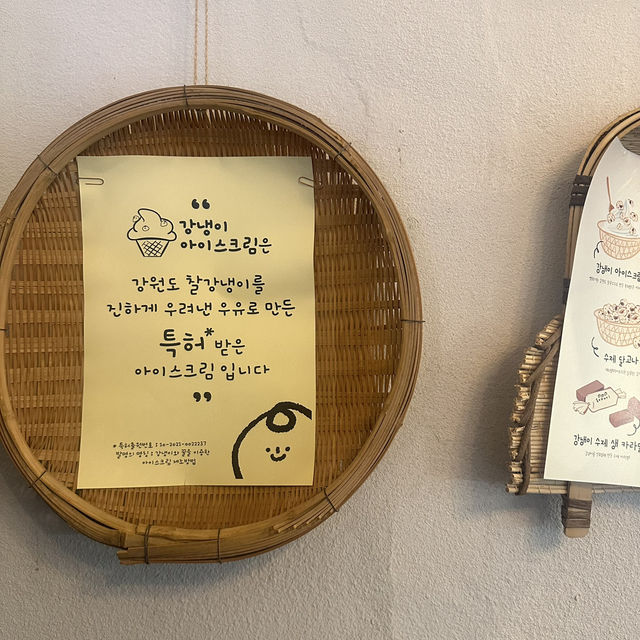 “
강냉이
아이스크림은
강원도 찰강냉이를
진하게 우려낸 우유로 만든
특허*받은
아이스크림 입니다
”
* 특허출원번호 : 10-2022-0022237
발명의 명칭 : 강냉이와 꿀을 이용한
아이스크림 제조방법
강냉이 아이스크림
수제 달고나
강냉이 수제 생 카라멜